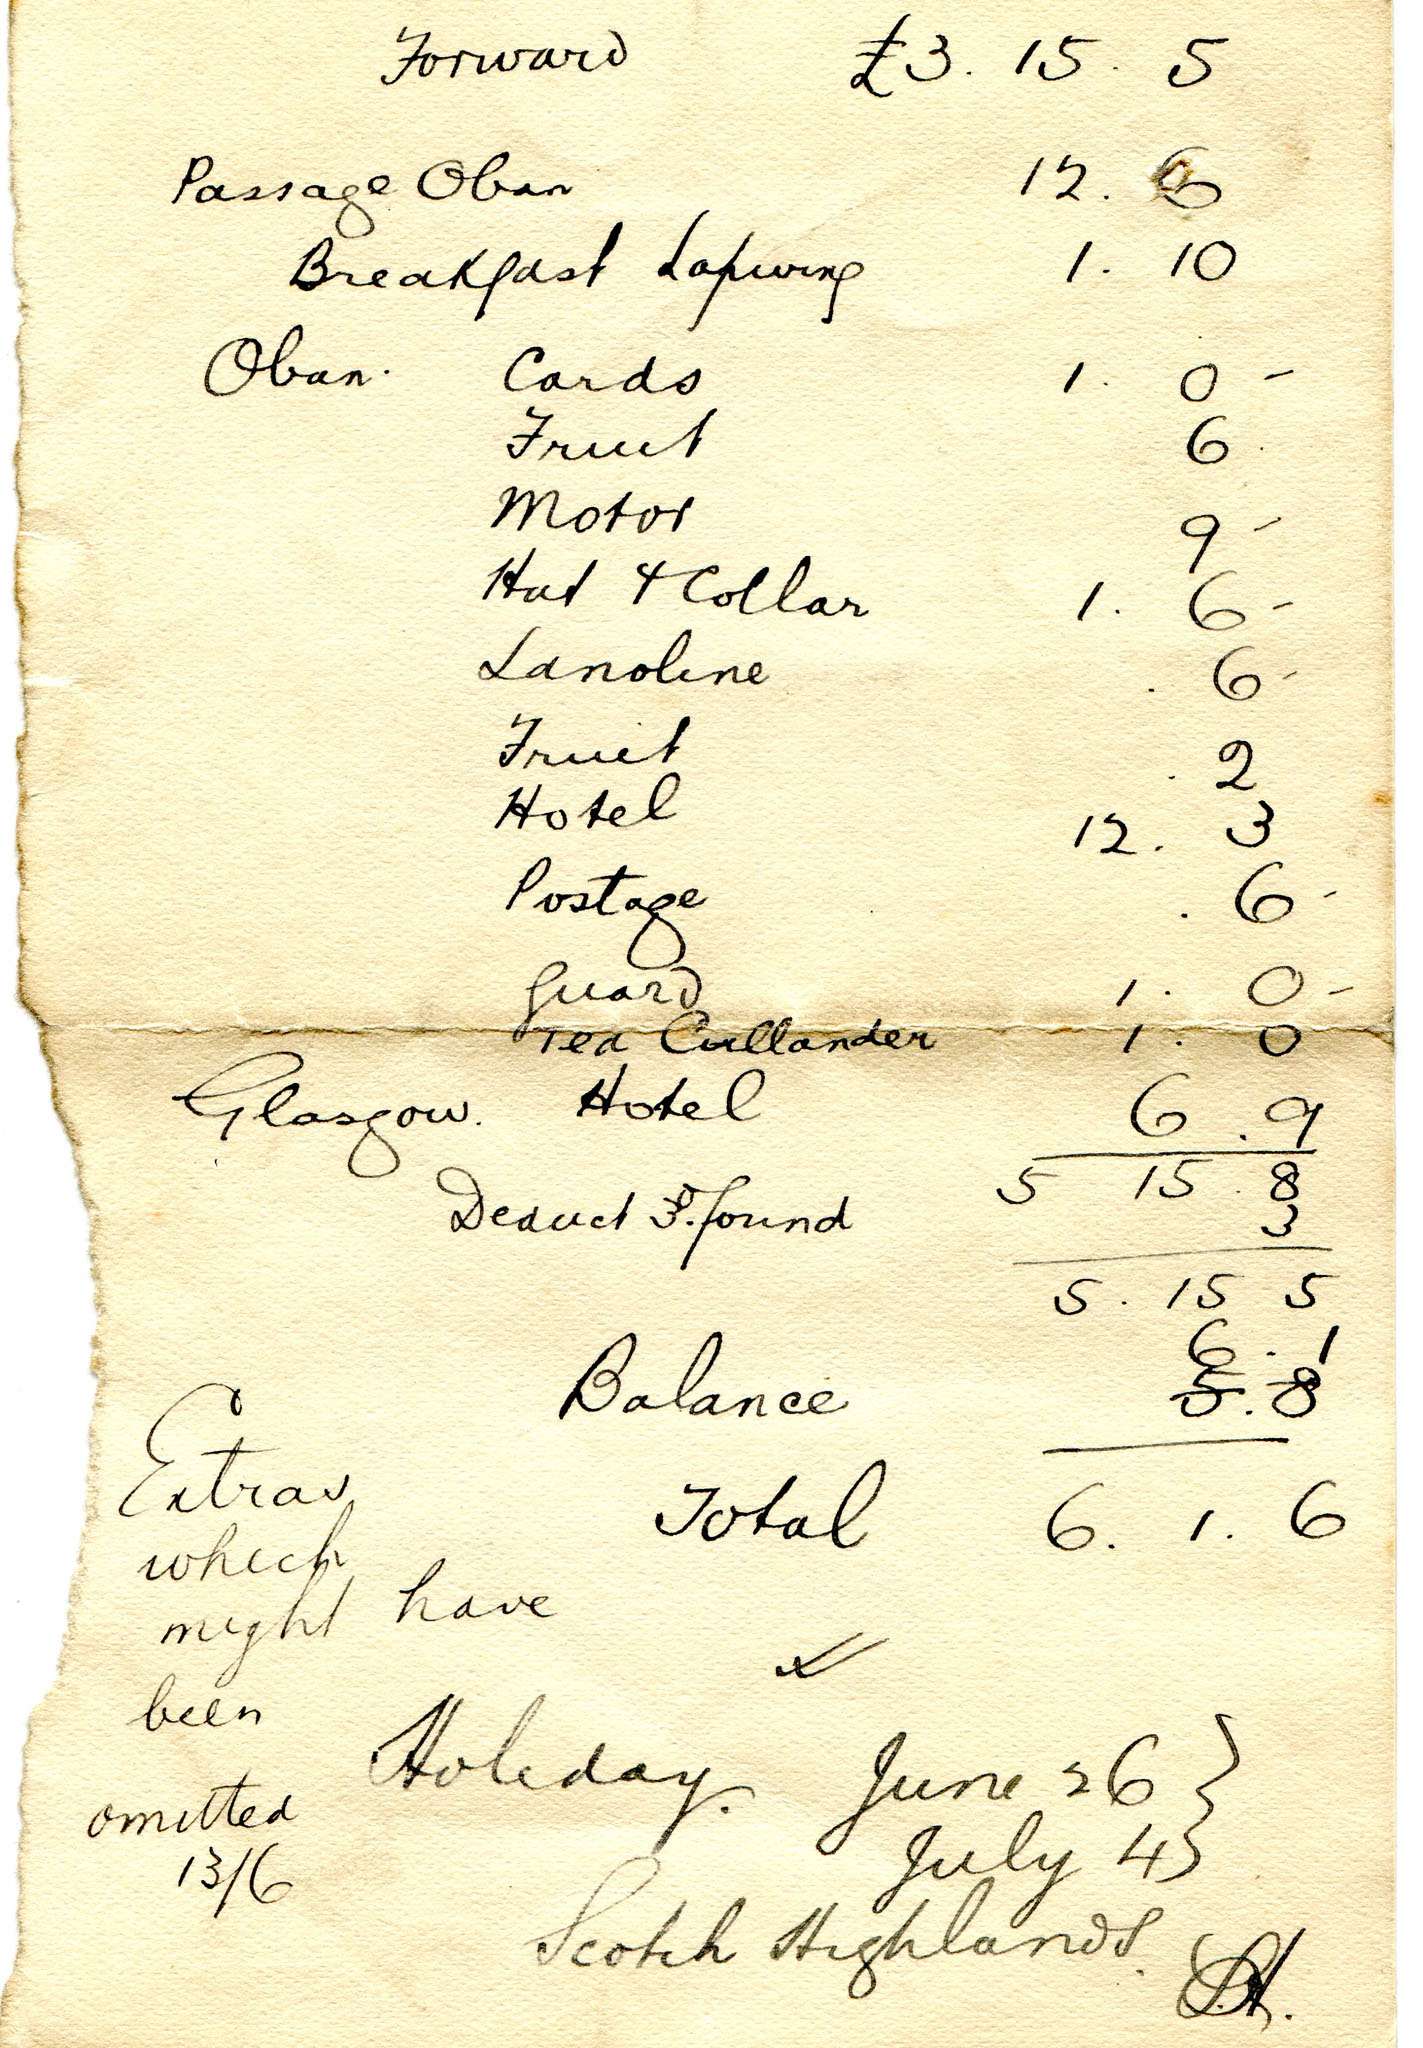 Forward £3. 15. 5
Passage Oban 12. 6
Breakfast Lapwing 1. 10
Oban. Cards 1. 0 -
Fruit 6
Motor 9 -
Hat & Collar 1. 6 -
Lanoline . 6 -
Fruit . 2
Hotel 12. 3
Postage . 6 -
Guard 1. 0 -
Tea Cullander 1. 0
Glasgow. Hotel 6. 9
5 15. 8
Deduct 3D. found 3
5. 15 5
6. 1
Balance 5. 8
Total 6. 1. 6
Extras
which
might have
been
omitted
13/6
Holiday. June 26 }
July 4 }
Scotch Highlands.